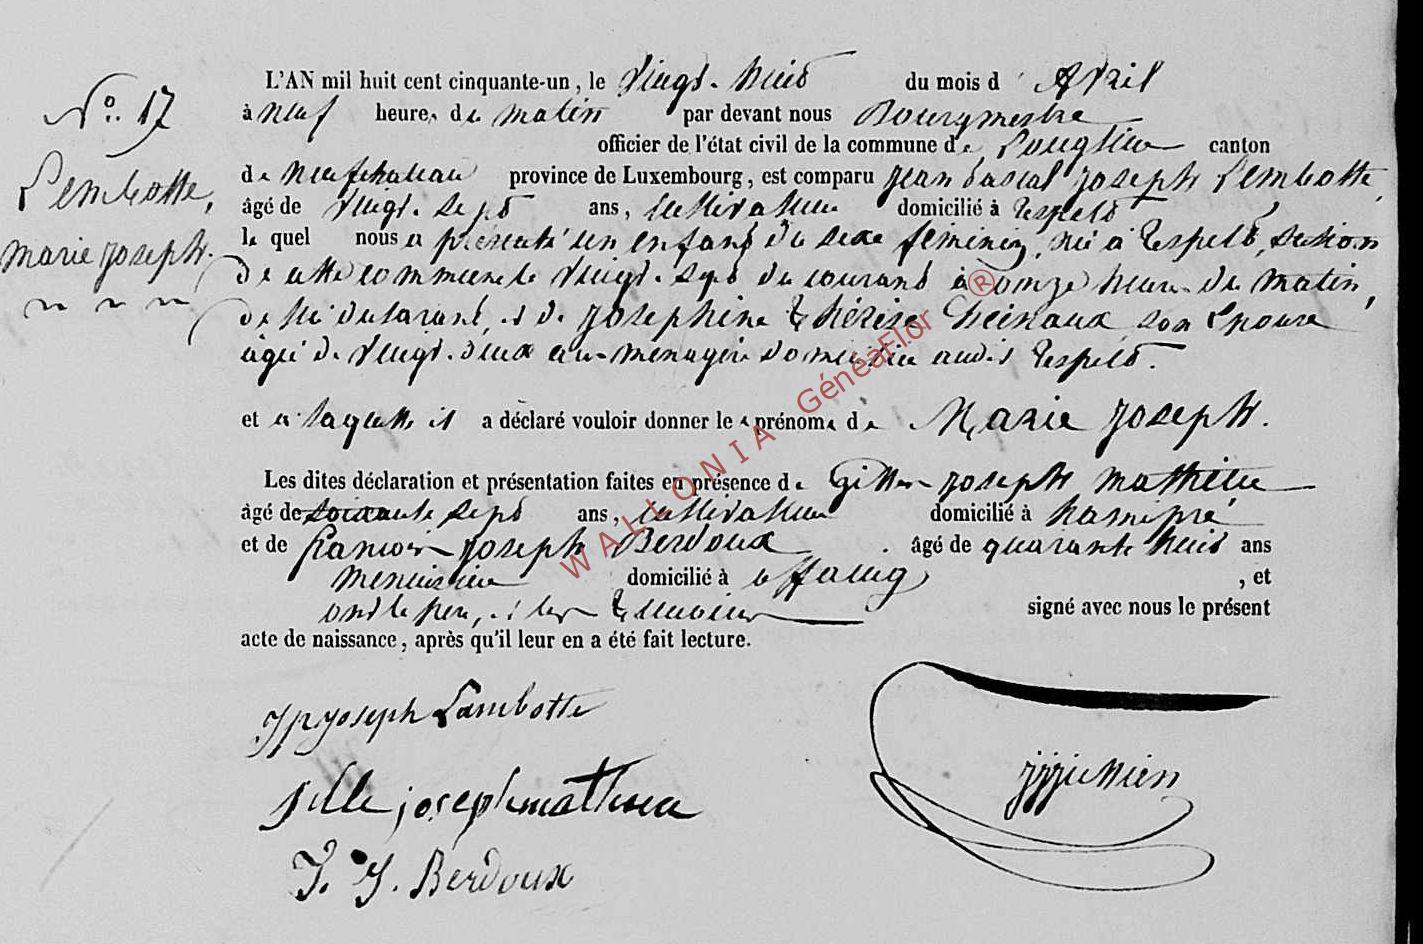 N.° 17
Lembotte,
Marie Joseph.
L'AN mil huit cent cinquante-un, le vingt-huit du mois d'Avril
à neuf heures du matin par devant nous Bourgmestre
officier de l'état civil de la commune de Longlier canton
de Neufchateau province de Luxembourg, est comparu Jean Pascal Joseph Lembotte,
âgé de vingt-sept ans, cultivateur domicilié à Respelt
le quel nous a présenté un enfant du sexe féminin, né à Respelt, section
de cette commune le vingt-sept du courant à onze heures du matin,
de lui déclarant, et de Josephine Thérèse son Epouse
agée de vingt-deux ans ménagère domiciliée audit Respelt.
et à laquelle il a déclaré vouloir donner les prénoms de Marie Joseph.
Les dites déclaration et présentation faites en présence de Gilles Joseph Mathieu
âgé de soixante sept ans, cultivateur domicilié à hamipré
et de François Joseph Berdoux âgé de quarante huit ans
menuisier domicilié à offaing, et
ont le père, et les témoins signé avec nous le présent
acte de naissance, après qu'il leur en a été fait lecture.
JPJoseph Lambotte
Gille joseph mathieu
F. J. Berdoux
WALLONIA GénéaFlor ®